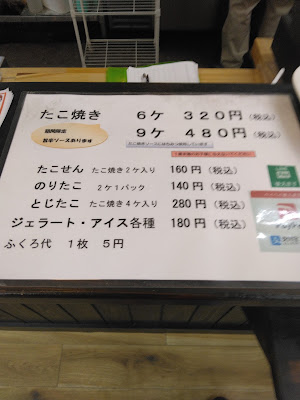 たこ焼き 6ケ 320円(税込)
期間限定
旨辛ソースあります
9ケ 480円(税込)
たこせん たこ焼き2ケ入り 160円(税込)
のりたこ 2ケ1パック 140円(税込)
とじたこ たこ焼き4ケ入り 280円(税込)
ジェラート・アイス各種 180円(税込)
ふくろ代 1枚 5円